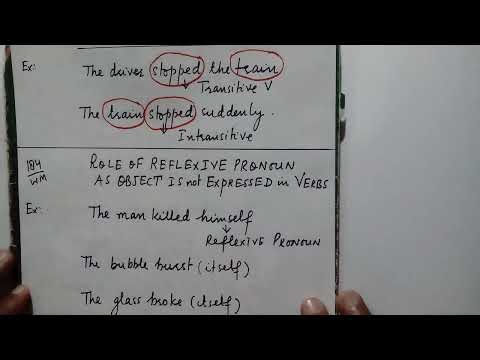 Ex:- The driver stopped the train
Transitive V
The train stopped suddenly.
Intransitive
184
WM
ROLE OF REFLEXIVE PRONOUN
AS OBJECT IS not EXPRESSED in VERBS
Ex:- The man killed himself
REFLEXIVE PRONOUN
The bubble burst (itself)
The glass broke (itself)